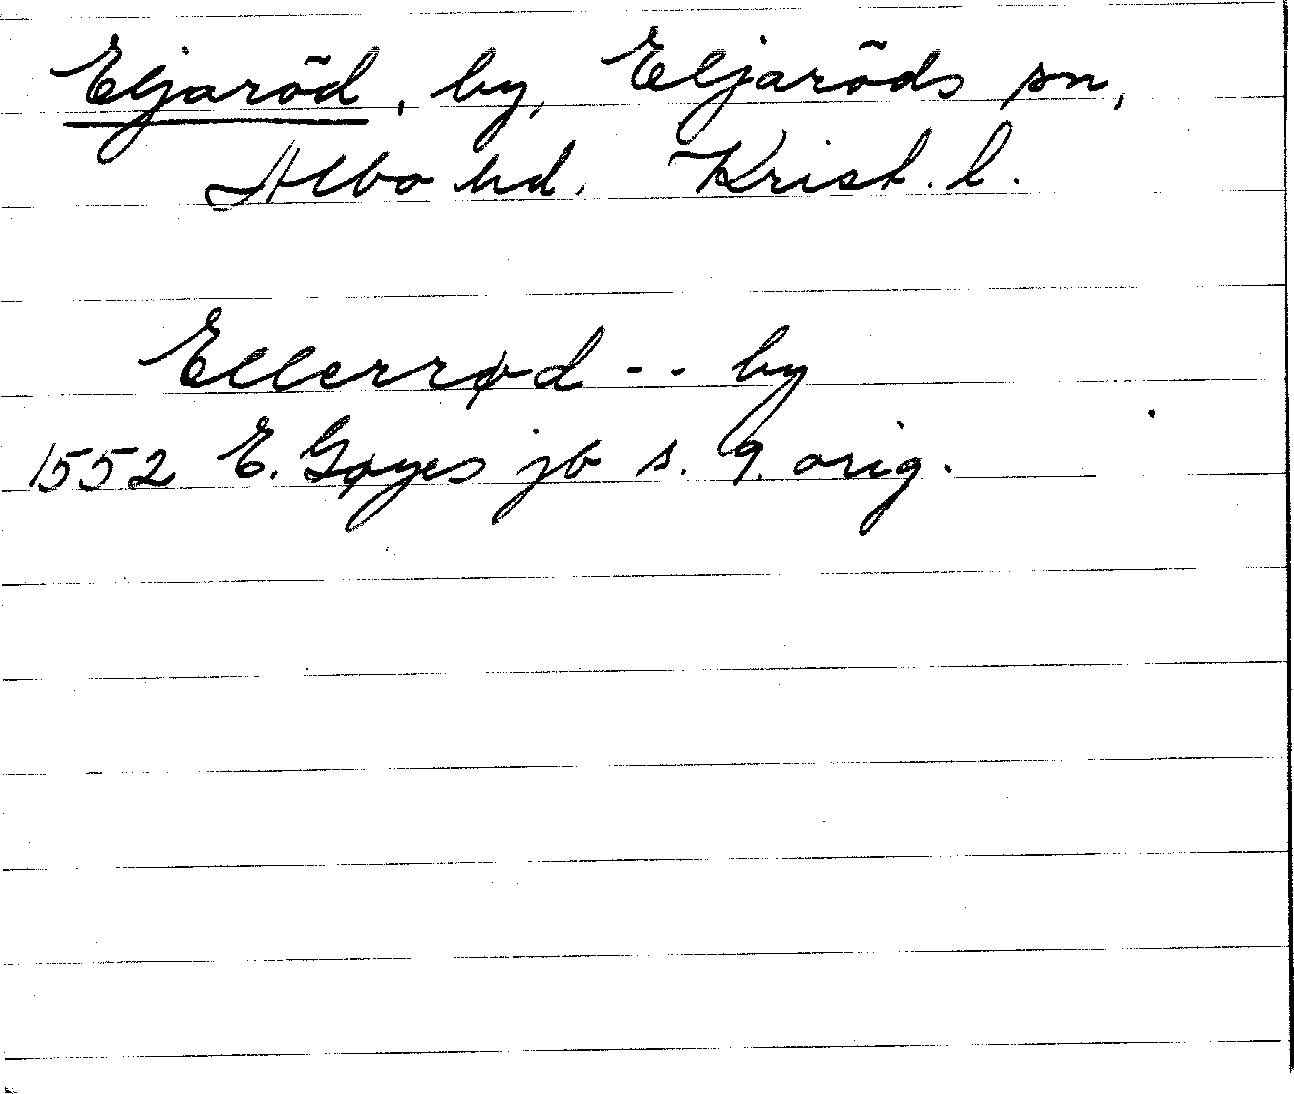 Eljaröd, by, Eljaröds sn,
Albo hd. Krist. l.
Ellerrød -- by
1552 E. Gøyes jb s. 9. orig.